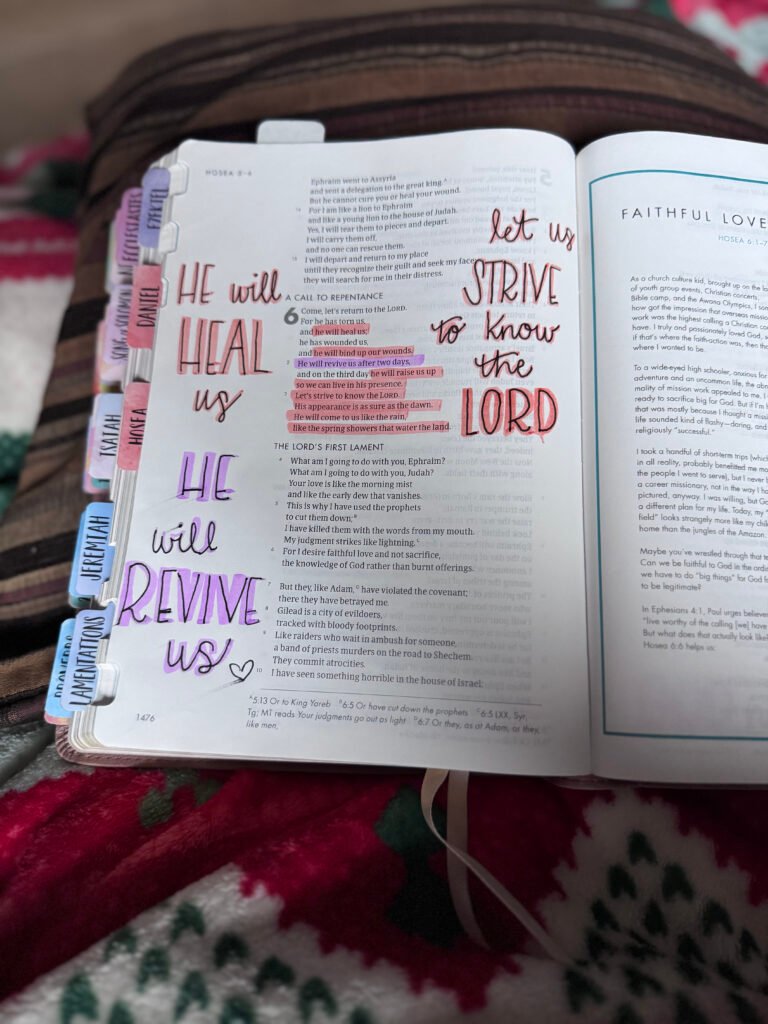 HOSEA 5-6
Ephraim went to Assyria
and sent a delegation to the great king.A
But he cannot cure you or heal your wound.
14 For I am like a lion to Ephraim
and like a young lion to the house of Judah.
Yes, I will tear them to pieces and depart.
I will carry them off,
and no one can rescue them.
15 I will depart and return to my place
until they recognize their guilt and seek my face;
they will search for me in their distress.
A CALL TO REPENTANCE
6 Come, let's return to the LORD.
For he has torn us,
and he will heal us;
he has wounded us,
and he will bind up our wounds.
2 He will revive us after two days,
and on the third day he will raise us up
so we can live in his presence.
3 Let's strive to know the LORD.
His appearance is as sure as the dawn.
He will come to us like the rain,
like the spring showers that water the land.
THE LORD'S FIRST LAMENT
4 What am I going to do with you, Ephraim?
What am I going to do with you, Judah?
Your love is like the morning mist
and like the early dew that vanishes.
5 This is why I have used the prophets
to cut them down;B
I have killed them with the words from my mouth.
My judgment strikes like lightning.C
6 For I desire faithful love and not sacrifice,
the knowledge of God rather than burnt offerings.
7 But they, like Adam,D have violated the covenant;
there they have betrayed me.
8 Gilead is a city of evildoers,
tracked with bloody footprints.
9 Like raiders who wait in ambush for someone,
a band of priests murders on the road to Shechem.
They commit atrocities.
10 I have seen something horrible in the house of Israel:
A 5:13 Or to King Yareb B 6:5 Or have cut down the prophets C 6:5 LXX, Syr,
Tg; MT reads Your judgments go out as light D 6:7 Or they, as at Adam, or they,
like men,
1476
HE will
HEAL
us
HE
will
REVIVE
us
let us
STRIVE
to know
the
LORD
EZEKIEL
ECCLESIASTES
DANIEL
SONG of SOLOMON
HOSEA
ISAIAH
JEREMIAH
LAMENTATIONS
PROVERBS
FAITHFUL LOVE
HOSEA 6:1-7
As a church culture kid, brought up on the
of youth group events, Christian concerts,
Bible camp, and the Awana Olympics, I
how got the impression that overseas
work was the highest calling a Christian
have. I truly and passionately loved God,
if that's where the faith-action was, then
where I wanted to be.
To a wide-eyed high schooler, anxious for
adventure and an uncommon life, the
mality of mission work appealed to me. I
ready to sacrifice big for God. But if I'm
that was mostly because I thought a
life sounded kind of flashy—daring, and
religiously "successful."
I took a handful of short-term trips (which
in all reality, probably benefited me
the people I went to serve), but I never
a career missionary, not in the way I
pictured, anyway. I was willing, but
a different plan for my life. Today, my
field" looks strangely more like my
home than the jungles of the Amazon.
Maybe you've wrestled through that
Can we be faithful to God in the
we have to do "big things" for God
to be legitimate?
In Ephesians 4:1, Paul urges
"live worthy of the calling [we] have
But what does that actually look like?
Hosea 6:6 helps us.